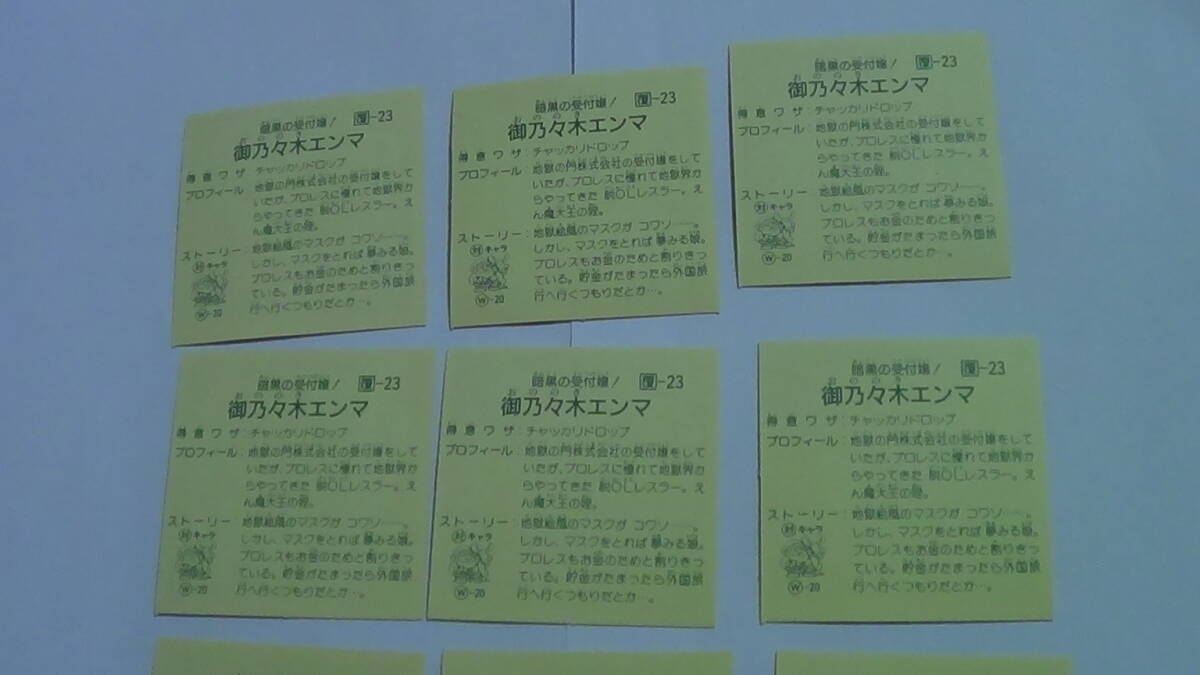 暗黒の受付嬢! 覆-23
おののき
御乃々木エンマ
得意ワザ:チャッカリドロップ
プロフィール:地獄の門株式会社の受付嬢をして
いたが、プロレスに憧れて地獄界か
らやってきた 脱OLレスラー。え
ん魔大王の姪。
ストーリー:地獄絵風のマスクが コワソ……。
対キャラ しかし、マスクをとれば夢みる娘。
プロレスもお金のためと割りきっ
ている。貯金がたまったら外国旅
W-20 行へ行くつもりだとか…。
暗黒の受付嬢! 覆-23
おののき
御乃々木エンマ
得意ワザ:チャッカリドロップ
プロフィール:地獄の門株式会社の受付嬢をして
いたが、プロレスに憧れて地獄界か
らやってきた 脱OLレスラー。え
ん魔大王の姪。
ストーリー:地獄絵風のマスクが コワソ……。
対キャラ しかし、マスクをとれば夢みる娘。
プロレスもお金のためと割りきっ
ている。貯金がたまったら外国旅
W-20 行へ行くつもりだとか…。
暗黒の受付嬢! 覆-23
おののき
御乃々木エンマ
得意ワザ:チャッカリドロップ
プロフィール:地獄の門株式会社の受付嬢をして
いたが、プロレスに憧れて地獄界か
らやってきた 脱OLレスラー。え
ん魔大王の姪。
ストーリー 地獄絵風のマスクが コワソ……。
対キャラ しかし、マスクをとれば夢みる娘。
プロレスもお金のためと割りきっ
ている。貯金がたまったら外国旅
W-20 行へ行くつもりだとか…。
暗黒の受付嬢! 覆-23
おののき
御乃々木エンマ
得意ワザ:チャッカリドロップ
プロフィール:地獄の門株式会社の受付嬢をして
いたが、プロレスに憧れて地獄界か
らやってきた 脱OLレスラー。え
ん魔大王の姪。
ストーリー 地獄絵風のマスクが コワソ……。
対キャラ しかし、マスクをとれば夢みる娘。
プロレスもお金のためと割りきっ
ている。貯金がたまったら外国旅
W-20 行へ行くつもりだとか…。
暗黒の受付嬢! 覆-23
おののき
御乃々木エンマ
得意ワザ:チャッカリドロップ
プロフィール:地獄の門株式会社の受付嬢をして
いたが、プロレスに憧れて地獄界か
らやってきた 脱OLレスラー。え
ん魔大王の姪。
ストーリー 地獄絵風のマスクが コワソ……。
対キャラ しかし、マスクをとれば夢みる娘。
プロレスもお金のためと割りきっ
ている。貯金がたまったら外国旅
W-20 行へ行くつもりだとか…。
暗黒の受付嬢! 覆-23
おののき
御乃々木エンマ
得意ワザ:チャッカリドロップ
プロフィール:地獄の門株式会社の受付嬢をして
いたが、プロレスに憧れて地獄界か
らやってきた 脱OLレスラー。え
ん魔大王の姪。
ストーリー:地獄絵風のマスクが コワソ……。
対キャラ しかし、マスクをとれば夢みる娘。
プロレスもお金のためと割りきっ
ている。貯金がたまったら外国旅
W-20 行へ行くつもりだとか…。